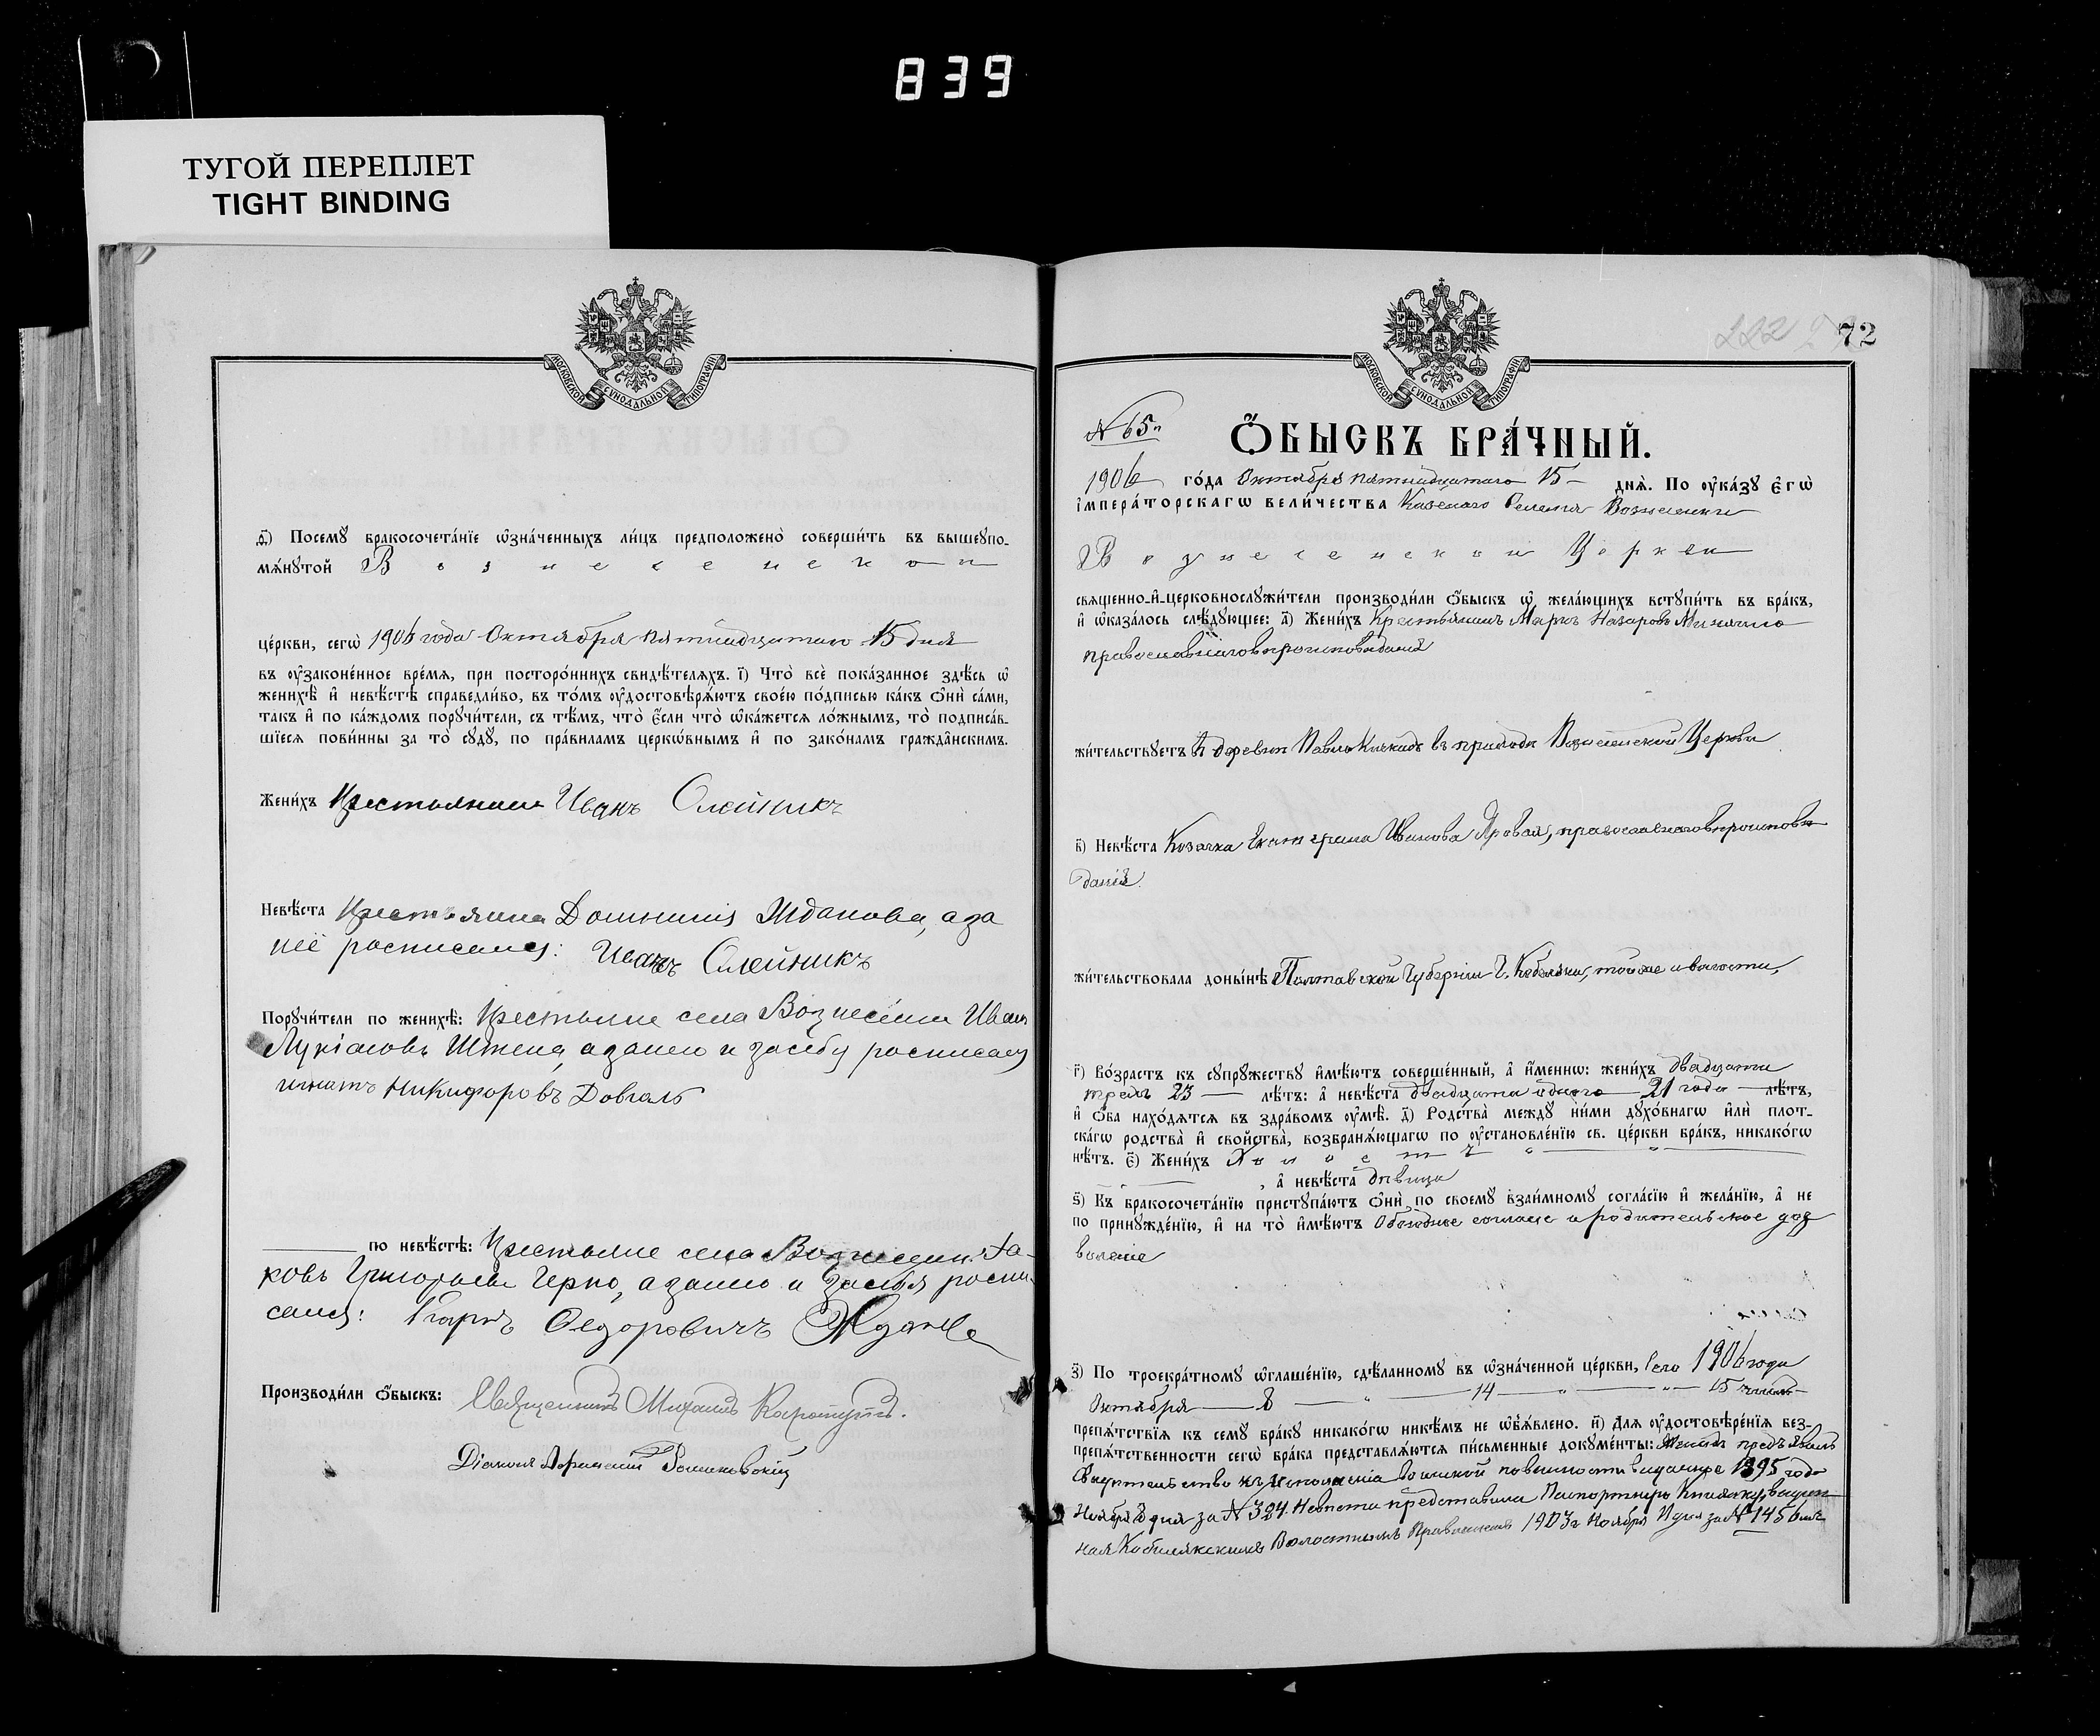 839
ТУГОЙ ПЕРЕПЛЕТ
TIGHT BINDING
МОСКОВСКОЙ СѴНОДАЛЬНОЙ ТИПОГРАФІИ
д҃) Посемꙋ бракосочета́нїе ѡ҆зна́ченныхъ ли́цъ предположено̀ соверши́ть въ вышеꙋпо-
мѧ́нꙋтой Вознесенской
це́ркви, сегѡ̀ 1906 года Октября пятнадцатаго 15 дня
въ ᲂу҆законе́нное вре́мѧ, при посторо́ннихъ свидѣ́телѧхъ. і҃) Что̀ всѐ пока́занное здѣ́сь ѡ҆
женихѣ̀ и҆ невѣ́стѣ справедли́во, въ то́мъ ᲂу҆достовѣрѧ́ютъ свое́ю по́дписью ка́къ ѻ҆нѝ са́ми,
такъ и҆ по ка́ждомъ порꙋчи́тели, съ тѣ́мъ, что̀ є҆́сли что̀ ѡ҆ка́жетсѧ ло́жнымъ, то̀ подписа́в-
шїесѧ пови́нны за то̀ сꙋдꙋ̀, по пра́виламъ церкѡ́внымъ и҆ по зако́намъ гражда̂нскимъ.
Жени́хъ Крестьянин Иванъ Олейникъ
Невѣ́ста Крестьянка Домникія Жданова, а за
неё росписался: Иванъ Олейникъ
Порꙋчи́тели по женихѣ̀: Крестьяне села Вознесенки Иван
Лукіановъ а за него и за себя росписался
Никифоровъ Довгаль
по невѣ́стѣ: Крестьяне села Вознесенки Я-
ковъ Григорьевъ а за него и за себя роспи-
сался: Федоровичъ
Производи́ли ѻ҆́быскъ: Священникъ Михаилъ
Діаконъ
222
72
МОСКОВСКОЙ СѴНОДАЛЬНОЙ ТИПОГРАФІИ
N 65
Ѻ҆́БЫСКЪ БРА́ЧНЫЙ.
1906 го́да Октября пятнадцатаго 15 днѧ̀. По ᲂу҆ка́зꙋ є҆гѡ̀
і҆мпера́торскагѡ вели́чества Казеннаго Селенія Вознесенки
Вознесенской Церкви
свѧще́нно-и҆-церковнослꙋжи́тели производи́ли ѻ҆́быскъ ѡ҆ жела́ющихъ встꙋпи́ть въ бра́къ,
и҆ ѡ҆каза́лось слѣ́дꙋющее: а҃) Жени́хъ Крестьянинъ Маркъ Назаровъ
православнаго вѣроисповѣданія
жи́тельствꙋетъ въ деревни Павло Кичкасъ въ приходѣ Вознесенской Церкви
в҃) Невѣ́ста Козачка Екатерина Иванова Яровая, православнаго вѣроисповѣ
данія.
жи́тельствовала доны́нѣ Полтавской Губерніи Г. Кобеляки, той же и волости,
г҃) Во́зрастъ къ сꙋпрꙋ́жествꙋ и҆мѣ́ютъ соверше́нный, а҆ и҆́меннѡ: жени́хъ двадцати
трехъ 23 лѣ́тъ: а҆ невѣ́ста двадцати одного 21 года лѣ́тъ,
и҆ ѻ҆́ба нахо́дѧтсѧ въ здра́вомъ ᲂу҆мѣ̀. д҃) Родства̀ междꙋ̀ ни́ми дꙋхо́внагѡ и҆лѝ плот-
ска́гѡ родства̀ и҆ свойства̀, возбранѧ́ющагѡ по ᲂу҆становле́нїю св. це́ркви бра́къ, никако́гѡ
нѣ́тъ. є҃) Жени́хъ Холостъ
, а҆ невѣ́ста дѣвица
ѕ҃) Къ бракосочета́нїю пристꙋпа́ютъ ѻ҆нѝ по своемꙋ̀ взаи́мномꙋ согла́сїю и҆ жела́нїю, а҆ не
по принꙋжде́нїю, и҆ на то̀ и҆мѣ́ютъ Обоюдное согласіе и родительское доз
воленіе
з҃) По троекра́тномꙋ ѡ҆глаше́нїю, сдѣ́ланномꙋ въ ѡ҆зна́ченной це́ркви, Сего 1906 года
Октября 8 — 14 — 15 числъ
препѧ́тствїѧ къ семꙋ̀ бра́кꙋ никако́гѡ никѣ́мъ не ѡ҆б̾ѧ́влено. и҃) Длѧ ᲂу҆достовѣре́нїѧ без-
препѧ́тственности сегѡ̀ бра́ка представлѧ́ютсѧ пи́сьменные докꙋме́нты: Женихъ предъявилъ
Свидетельство къ исполненію воинской повинности выданное 1895 года
Ноября 8 дня за N 324. Невѣста представила Паспортную Книжку, выдан
ная Кобелякскимъ Волостнымъ Правленіемъ 1903 г Ноября за N 1456